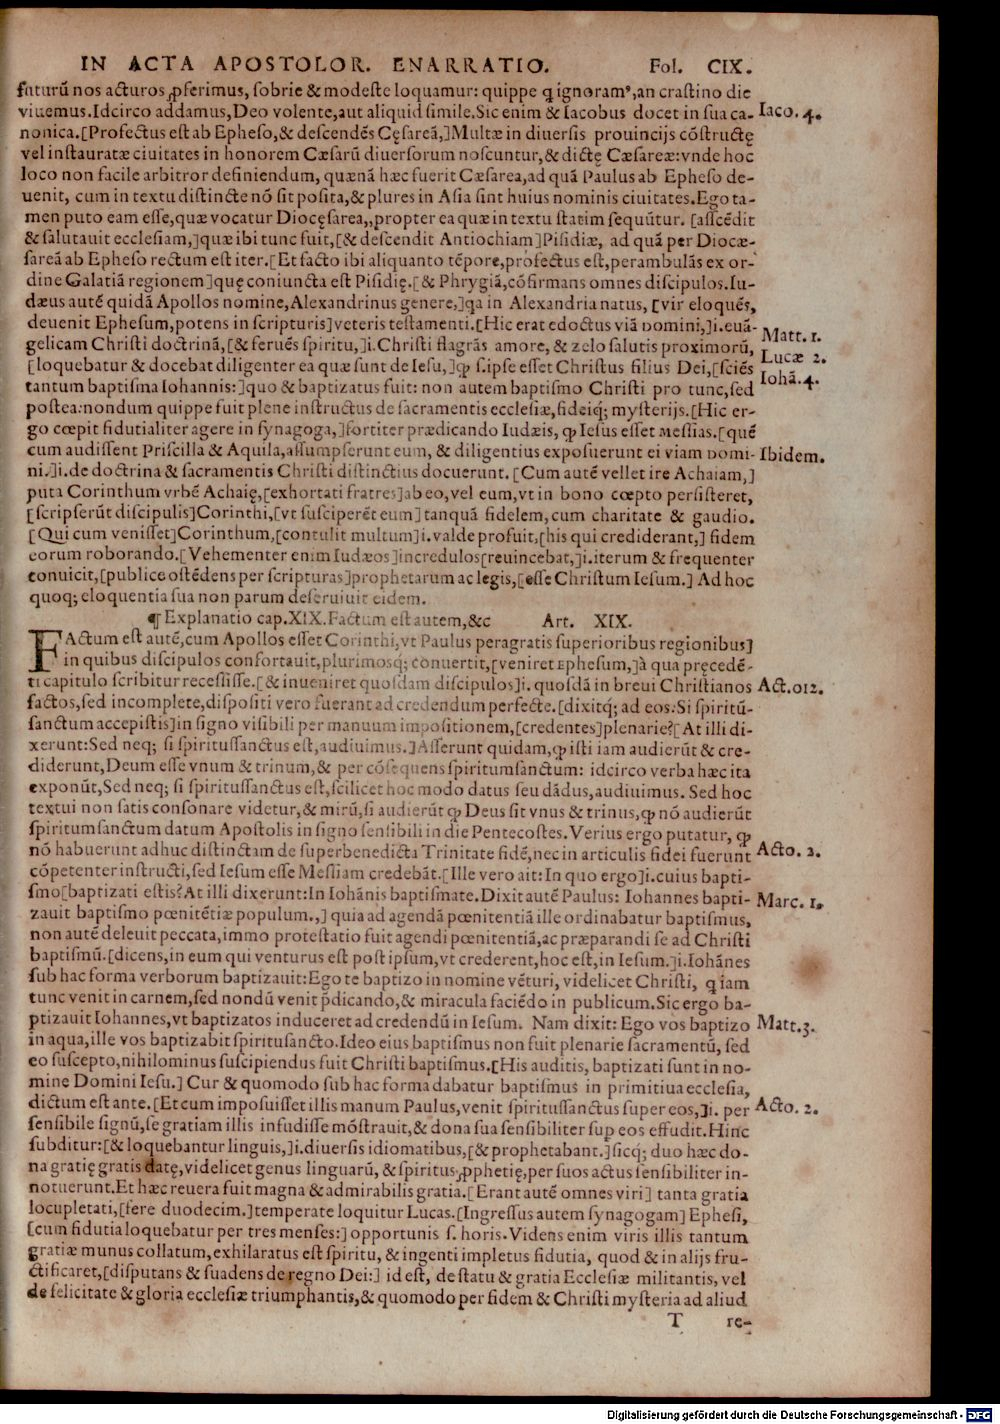 IN ACTA APOSTOLOR. ENARRATIO. Fol. CIX.
futurũ nos acturos ꝓferimus, sobrie & modeste loquamur: quippe q̃ ignoramꝰ, an crastino die
viuemus. Idcirco addamus, Deo volente, aut aliquid simile. Sic enim & Iacobus docet in sua ca- Iaco. 4.
nonica. [Profectus est ab Epheso, & descendẽs Cęsareã,] Multæ in diuersis prouincijs cõstructę
vel instauratæ ciuitates in honorem Cæsarũ diuersorum noscuntur, & dictę Cæsareæ: vnde hoc
loco non facile arbitror definiendum, quænã hæc fuerit Cæsarea, ad quã Paulus ab Epheso de-
uenit, cum in textu distincte nõ sit posita, & plures in Asia sint huius nominis ciuitates. Ego ta-
men puto eam esse, quæ vocatur Diocęsarea,, propter ea quæ in textu statim sequũtur. [ascẽdit
& salutauit ecclesiam,] quæ ibi tunc fuit, [& descendit Antiochiam] Pisidiæ, ad quã per Diocæ-
sareã ab Epheso rectum est iter. [Et facto ibi aliquanto tẽpore, profectus est, perambulãs ex or-
dine Galatiã regionem] quę coniuncta est Pisidię. [& Phrygiã, cõfirmans omnes discipulos. Iu-
dæus autẽ quidã Apollos nomine, Alexandrinus genere,] qa in Alexandria natus, [vir eloquẽs,
deuenit Ephesum, potens in scripturis] veteris testamenti. [Hic erat edoctus viã Domini,] i. euã- Matt. 1.
gelicam Christi doctrinã, [& feruẽs spiritu,] i. Christi flagrãs amore, & zelo salutis proximorũ, Lucæ 2.
[loquebatur & docebat diligenter ea quæ sunt de Iesu,] ꝙ s. ipse esset Christus filius Dei, [sciẽs Iohã. 4.
tantum baptisma Iohannis:] quo & baptizatus fuit: non autem baptismo Christi pro tunc, sed
postea: nondum quippe fuit plene instructus de sacramentis ecclesiæ, fideiq; mysterijs. [Hic er-
go cœpit fidutialiter agere in synagoga,] fortiter prædicando Iudæis, ꝙ Iesus esset Messias. [quẽ
cum audissent Priscilla & Aquila, assumpserunt eum, & diligentius exposuerunt ei viam Domi- Ibidem.
ni.] i. de doctrina & sacramentis Christi distinctius docuerunt. [Cum autẽ vellet ire Achaiam,]
puta Corinthum vrbẽ Achaię, [exhortati fratres] ab eo, vel eum, vt in bono cœpto persisteret,
[scripserũt discipulis] Corinthi, [vt susciperẽt eum] tanquã fidelem, cum charitate & gaudio.
[Qui cum venisset] Corinthum, [contulit multum] i. valde profuit, [his qui crediderant,] fidem
eorum roborando. [Vehementer enim Iudæos] incredulos [reuincebat,] i. iterum & frequenter
conuicit, [publice ostẽdens per scripturas] prophetarum ac legis, [esse Christum Iesum.] Ad hoc
quoq; eloquentia sua non parum deseruiuit eidem.
¶ Explanatio cap. XIX. Factum est autem, &c Art. XIX.
FActum est autẽ, cum Apollos esset Corinthi, vt Paulus peragratis superioribus regionibus]
in quibus discipulos confortauit, plurimosq; conuertit, [veniret Ephesum,] à qua pręcedẽ-
ti capitulo scribitur recessisse. [& inueniret quosdam discipulos] i. quosdã in breui Christianos Act. 012.
factos, sed incomplete, dispositi vero fuerant ad credendum perfecte. [dixitq; ad eos: Si spiritũ-
sanctum accepistis] in signo visibili per manuum impositionem, [credentes] plenarie? [At illi di-
xerunt: Sed neq; si spiritussanctus est, audiuimus.] Asserunt quidam, ꝙ isti iam audierũt & cre-
diderunt, Deum esse vnum & trinum, & per cõsequens spiritumsanctum: idcirco verba hæc ita
exponũt, Sed neq; si spiritussanctus est, scilicet hoc modo datus seu dãdus, audiuimus. Sed hoc
textui non satis consonare videtur, & mirũ, si audierũt ꝙ Deus sit vnus & trinus, ꝙ nõ audierũt
spiritumsanctum datum Apostolis in signo sensibili in die Pentecostes. Verius ergo putatur, ꝙ
nõ habuerunt adhuc distinctam de superbenedicta Trinitate fidẽ, nec in articulis fidei fuerunt Acto. 2.
cõpetenter instructi, sed Iesum esse Messiam credebãt. [Ille vero ait: In quo ergo] i. cuius bapti-
smo [baptizati estis? At illi dixerunt: In Iohãnis baptismate. Dixit autẽ Paulus: Iohannes bapti- Marc. 1.
zauit baptismo pœnitẽtiæ populum.,] quia ad agendã pœnitentiã ille ordinabatur baptismus,
non autẽ deleuit peccata, immo protestatio fuit agendi pœnitentiã, ac præparandi se ad Christi
baptismũ. [dicens, in eum qui venturus est post ipsum, vt crederent, hoc est, in Iesum.] i. Iohãnes
sub hac forma verborum baptizauit: Ego te baptizo in nomine vẽturi, videlicet Christi, q iam
tunc venit in carnem, sed nondũ venit p̃dicando, & miracula faciẽdo in publicum. Sic ergo ba-
ptizauit Iohannes, vt baptizatos induceret ad credendũ in Iesum. Nam dixit: Ego vos baptizo Matt. 3.
in aqua, ille vos baptizabit spiritusancto. Ideo eius baptismus non fuit plenarie sacramentũ, sed
eo suscepto, nihilominus suscipiendus fuit Christi baptismus. [His auditis, baptizati sunt in no-
mine Domini Iesu.] Cur & quomodo sub hac forma dabatur baptismus in primitiua ecclesia,
dictum est ante. [Et cum imposuisset illis manum Paulus, venit spiritussanctus super eos,] i. per Acto. 2.
sensibile signũ, se gratiam illis infudisse mõstrauit, & dona sua sensibiliter sup eos effudit. Hinc
subditur: [& loquebantur linguis,] i. diuersis idiomatibus, [& prophetabant.] sicq; duo hæc do-
na gratię gratis datę, videlicet genus linguarũ, & spiritus ꝓphetię, per suos actus sensibiliter in-
notuerunt. Et hæc reuera fuit magna & admirabilis gratia. [Erant autẽ omnes viri] tanta gratia
locupletati, [fere duodecim.] temperate loquitur Lucas. [Ingressus autem synagogam] Ephesi,
[cum fidutia loquebatur per tres menses:] opportunis s. horis. Videns enim viris illis tantum
gratiæ munus collatum, exhilaratus est spiritu, & ingenti impletus fidutia, quod & in alijs fru-
ctificaret, [disputans & suadens de regno Dei:] id est, de statu & gratia Ecclesiæ militantis, vel
de felicitate & gloria ecclesiæ triumphantis, & quomodo per fidem & Christi mysteria ad aliud
T re-
Digitalisierung gefördert durch die Deutsche Forschungsgemeinschaft - DFG